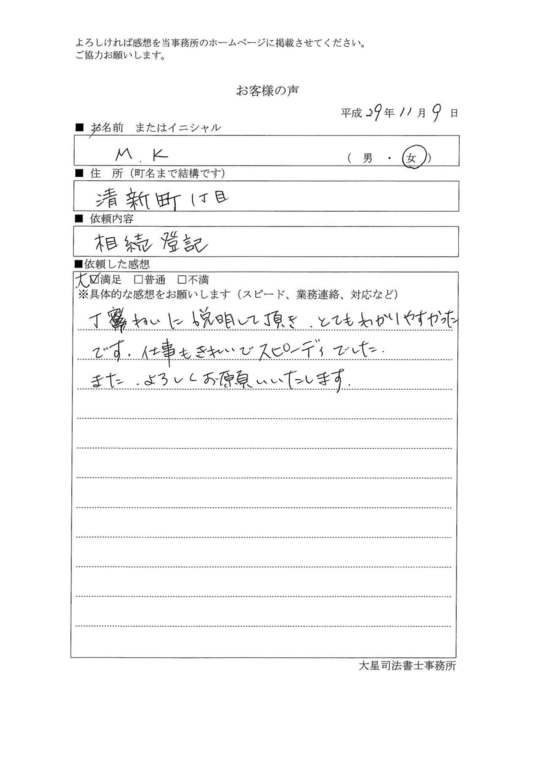 よろしければ感想を当事務所のホームページに掲載させてください。
ご協力お願いします。
お客様の声
平成29年11月9日
■ お名前 またはイニシャル
M.K (男・女)
■ 住 所(町名まで結構です)
清新町1丁目
■ 依頼内容
相続登記
■依頼した感想
大☑満足 □普通 □不満
※具体的な感想をお願いします(スピード、業務連絡、対応など)
丁ねいに説明して頂き、とてもわかりやすかった
です。仕事もきれいでスピーディでした。
また、よろしくお願いいたします。
大星司法書士事務所